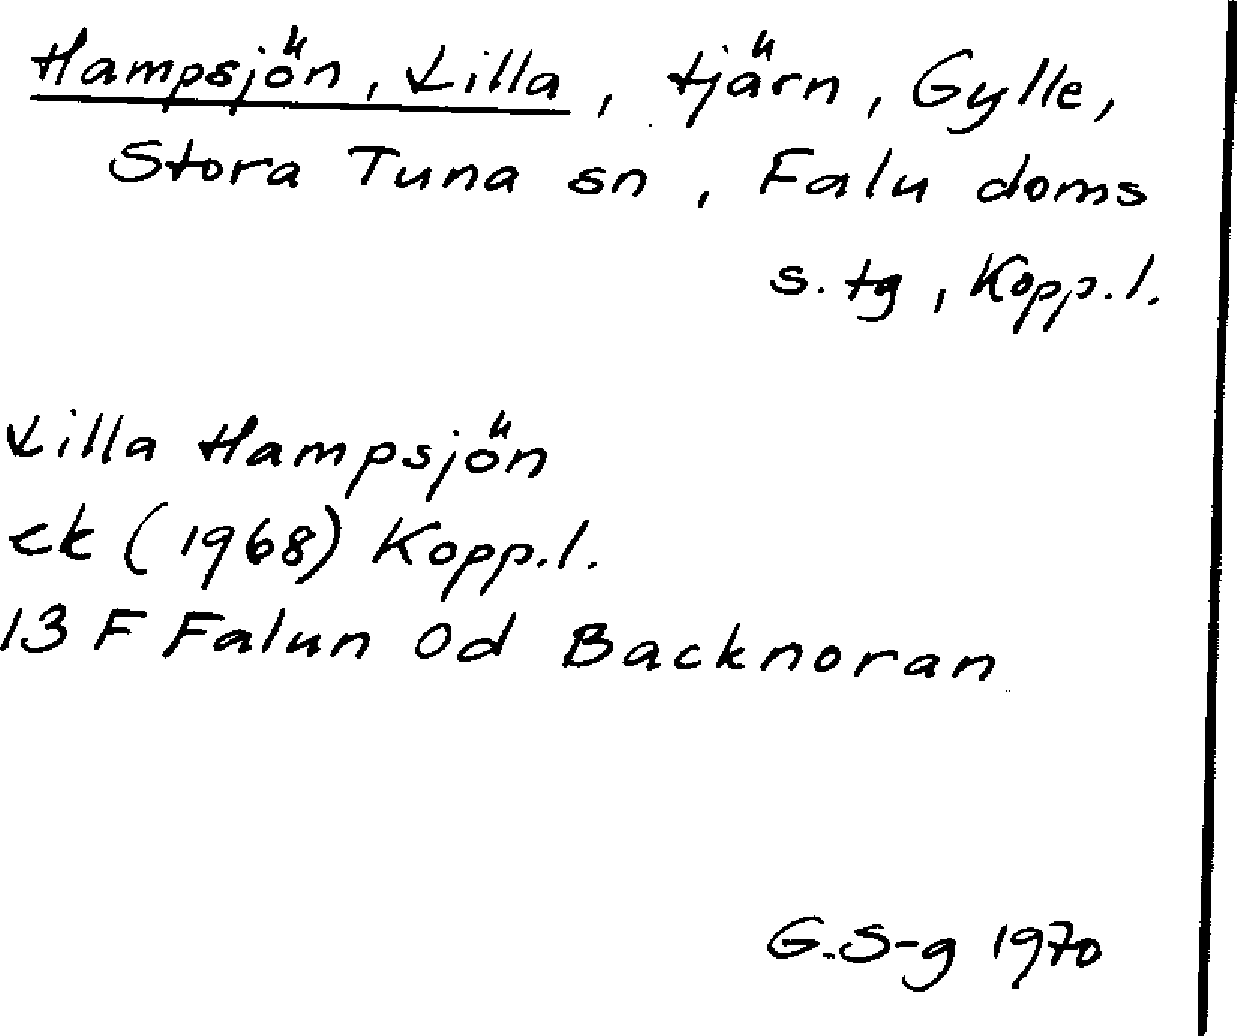 Hampsjön, Lilla, tjärn, Gylle,
Stora Tuna sn, Falu doms
s. tg, Kopp.l.
Lilla Hampsjön
ek (1968) Kopp.l.
13 F Falun 0d Backnoran
G.S-g 1970